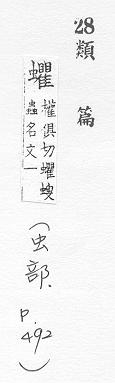 28
類篇
蠷
權俱切蠷螋
蟲名文一
(虫部. p. 492)